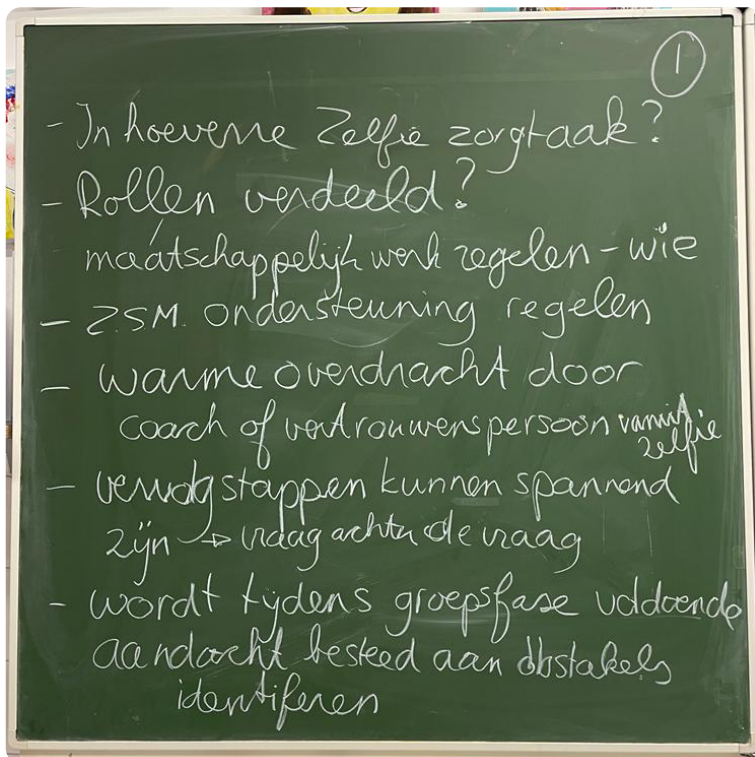 1
- In hoeverre Zelfie zorgtaak?
- Rollen verdeeld?
maatschappelijk werk regelen - wie
- Z.S.M. ondersteuning regelen
- warme overdracht door
coach of vertrouwenspersoon vanuit zelfie
- vervolgstappen kunnen spannend
zijn → vraag achter de vraag
- wordt tijdens groepsfase voldoende
aandacht besteed aan obstakels
identiferen